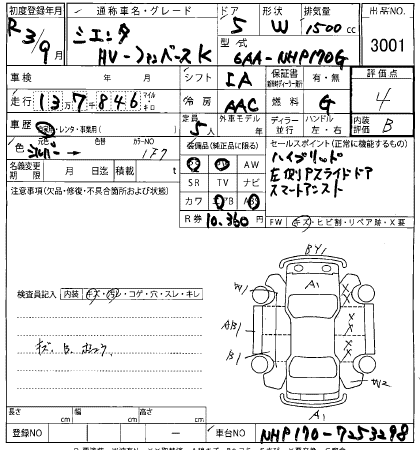 初度登録年月 通称車名・グレード ドア 形状 排気量 出品NO.
R 3/9月 シエンタ 5 W 1500cc 3001
HV-ファンベース K
型式 6AA-NHP170G
車検 年 月 シフト IA 保証書 有・無 評価点
走行 137846 マイル キロ 冷房 AAC 燃料 G 4
車歴 自家用・レンタ・事業用( ) 定員 5人 外車モデル 年 ディーラー 並行 ハンドル 左・右 内装評価 B
色 元色 シルバー → 色替 カラーNO 1F7 装備品(純正品に限る) セールスポイント(正常に機能するもの)
PS PW AW ハイブリッド
名義変更期限 月 日迄 積載 t SR TV ナビ 左側Pスライドドア
注意事項(欠品・修復・不具合箇所および状態) カワ エアB ABS スマートアシスト
R券 10,360円 FW キズ・ヒビ割・リペア跡・X要
検査員記入 内装 キズ・汚レ・コゲ・穴・スレ・キレ
BY1
A1
W1
AB1
B1
X
X
X
W2
A1
長さ cm 幅 cm 高さ cm
登録NO 車台NO NHP170-7253298